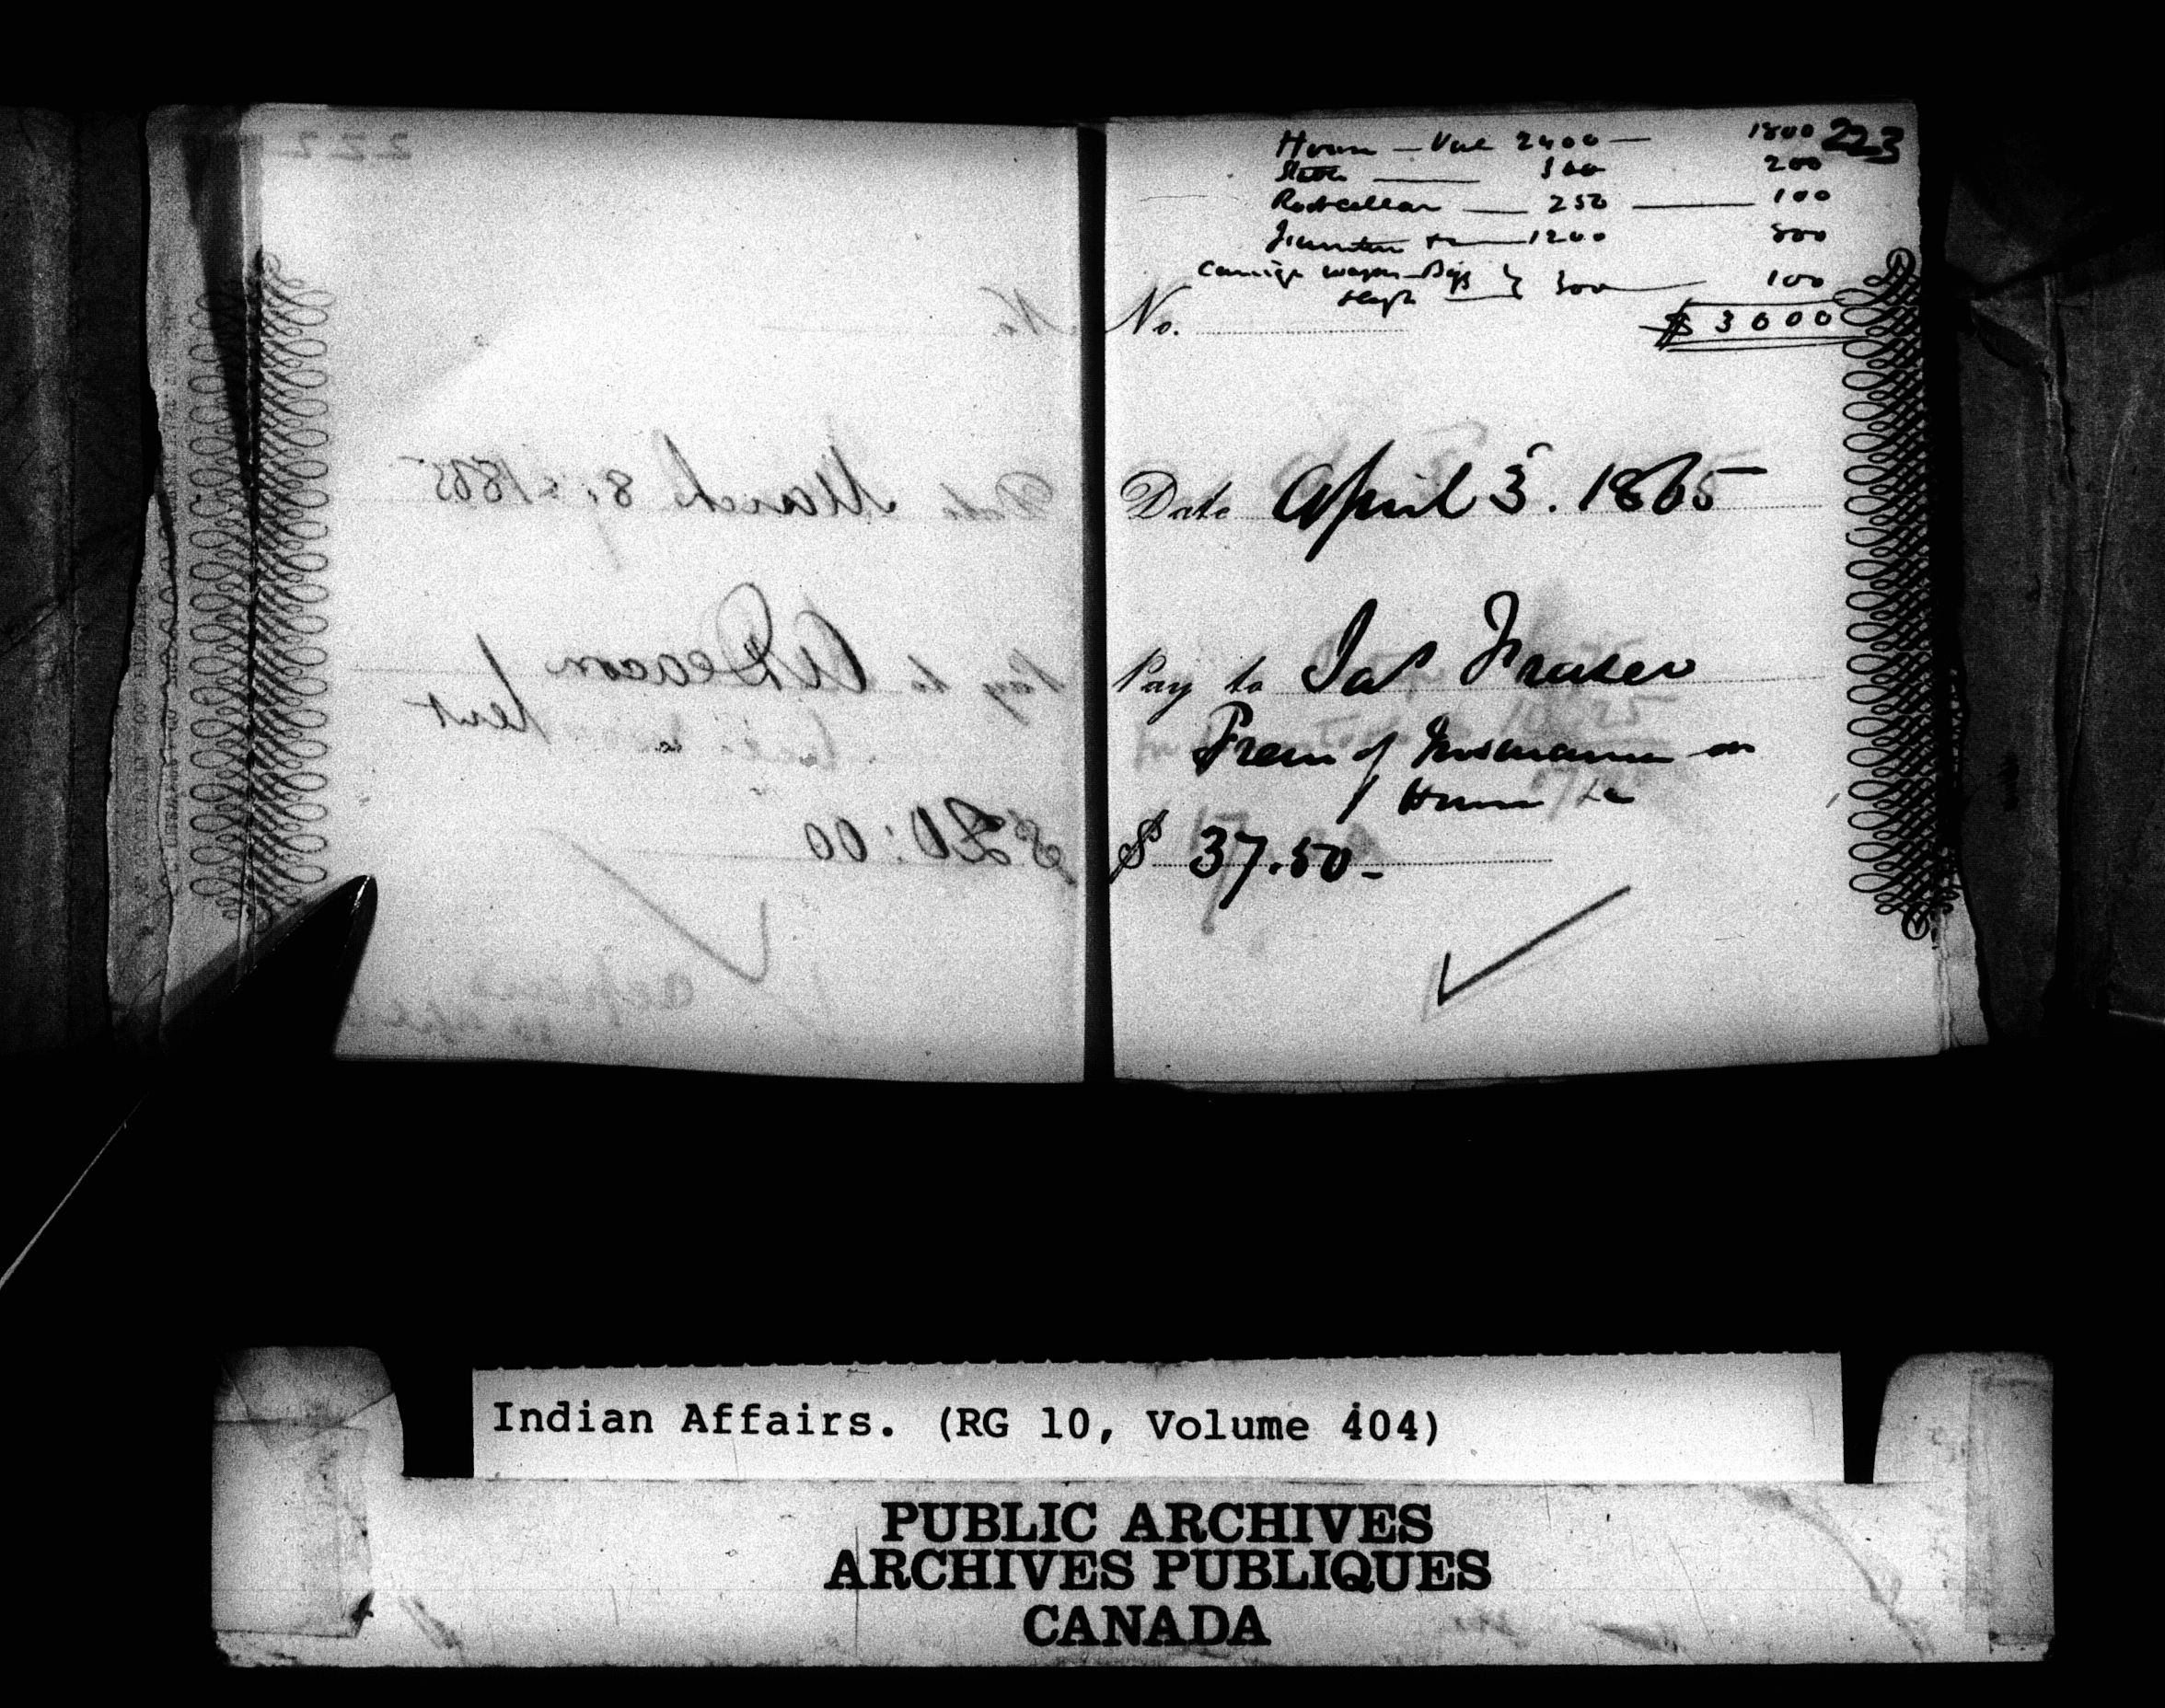 223
House — Val 2400 — 1800
Stable — 300 200
Rootcellar — 250 — 100
Furniture &c — 1200 800
Carriage wagon – Buggy
Sleigh } 300 — 100
$ 3000
No.
Date April 3. 1865
Pay to Jas Fraser
Prem of Insurance on
House &c
$ 37.50 –
222
No.
Date March 8, 1865
Pay to A Deacon
$ 20:00
Indian Affairs. (RG 10, Volume 404)
PUBLIC ARCHIVES
ARCHIVES PUBLIQUES
CANADA